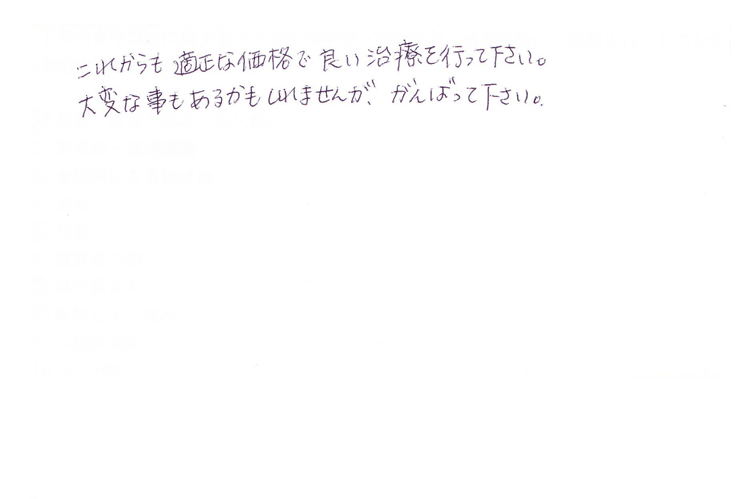 これからも適正な価格で良い治療を行って下さい。
大変な事もあるかもしれませんが、がんばって下さい。